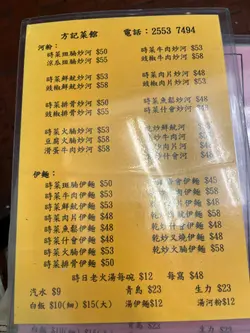 方記菜館 電話：2553 7494
河粉：
時菜班腩炒河 $50 時菜牛肉炒河 $53
涼瓜班腩炒河 $55 豉椒牛肉炒河 $55
時菜鮮魷炒河 $50 時菜肉片炒河 $48
豉椒鮮魷炒河 $55 豉椒肉片炒河 $53
時菜排骨炒河 $50 時菜魚鬆炒河 $48
豉椒排骨炒河 $55 時菜什會炒河 $48
時菜火腩炒河 $53 乾炒鮮魷河
豆腐火腩炒河 $58 乾炒牛肉河
滑蛋牛肉炒河 $58 乾炒什會河
伊麵：
時菜班腩伊麵 $50
時菜牛肉伊麵 $53
時菜鮮魷伊麵 $50
時菜肉片伊麵 $48
時菜魚鬆伊麵 $48 $48
時菜什會伊麵 $48 乾炒叉燒伊麵 $48
時菜火腩伊麵 $53 $58
時菜排骨伊麵 $50
時日老火湯每碗 $12 每窩 $48
汽水 $9 青島 $23 生力 $23
白飯 $10(細) $15(大) 湯伊麵$12 湯河粉$12